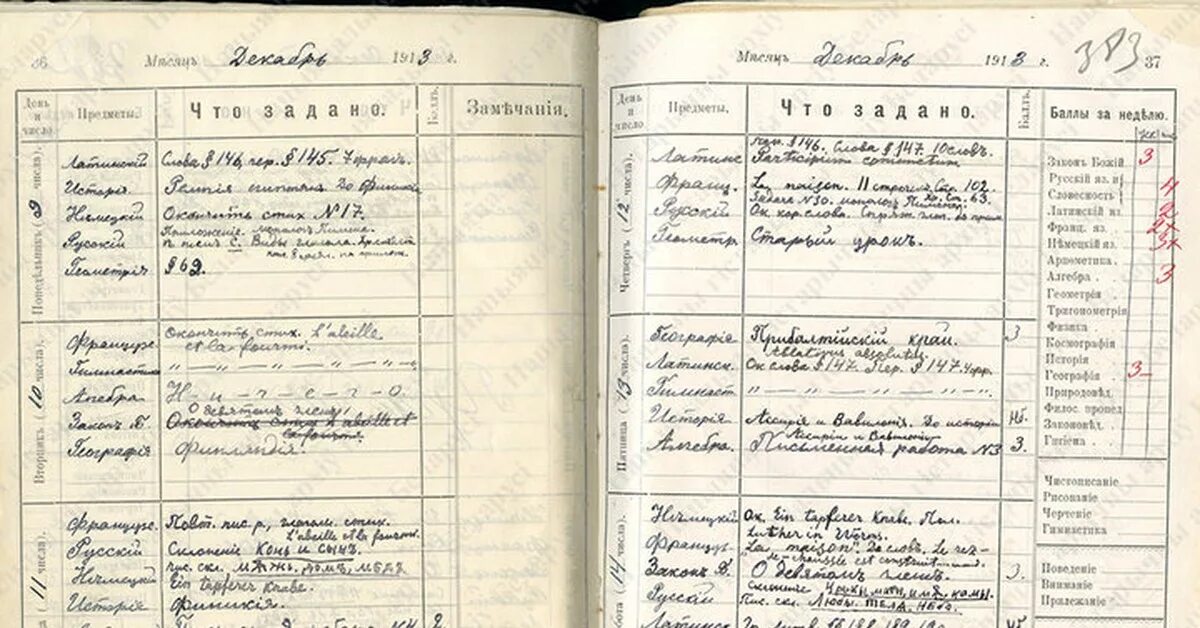 36 Мѣсяцъ Декабрь 1913 г.
День и число.
Предметы.
Что задано.
Баллъ.
Замѣчанія.
Понедѣльникъ 9 числа).
Латинскій Слова § 146, пер. § 145. 7 фраз.
Исторія Религія египтянъ До Финикіи
Нѣмецкій Окончить стих №17.
Приложеніе. монологъ Пимена.
Русскій Виды глагола.
Геометрія § 62.
Вторникъ 10 числа).
Француз. Окончить стих. L'abeille et la fourmi.
Гимнастика " — " — " — " —
Алгебра Н - и - ч - е - г - о.
О девятомъ членѣ,
Законъ Б. Окончить стих L'abeille et la fourmi.
Географія Финляндія.
11 числа).
Француз. Повт. пис. р., глаголы. стих.
L'abeille et la fourmi.
Русскій Склоненіе Конь и сынъ.
пис. скл. мужъ, домъ, медъ
Нѣмецкій Ein tapferer Knabe.
Исторія Финикія.
Мѣсяцъ Декабрь 1913 г. 383 37
День и число
Предметы.
Что задано.
Баллъ.
Баллы за недѣлю.
Четвергъ 12 числа).
пер. § 146. Слова § 147. 10 словъ.
Латинс Participium conjunctum
Франц. La maison. 11 строчекъ. Стр. 102.
Задача №30. монологъ Пимена. Стр. 63.
Русскій Ок. кор. слова. Спряж. глаг.
Геометр. Старый урокъ.
Пятница 13 числа).
Географія Прибалтійскій край. 3
Ablativus absolutus.
Латинск. Ок слова § 147. Пер. § 147. 4 фр.
Гимнаст " — " — " — " — "
Исторія Ассирія и Вавилонія. До исторіи Нб.
Ассиріи и Вавилоніи
Алгебра. Письменная работа №3 3.
14 числа).
Нѣмецкій Ок. Ein tapferer Knabe. Пол.
Luther in Worms.
Француз. La maison. До словъ. Le rez-de-chaussée est construit
Законъ Б. О девятомъ членѣ. 3.
Русскій
Пис. скл. Любы. тѣла, небо.
Законъ Божій 3
Русскій яз. и
Словесность 4
Латинскій яз. 2
Франц. яз. 2+
Нѣмецкій яз. 3+
Ариѳметика.
Алгебра. 3
Геометрія
Тригонометрія
Физика
Космографія
Исторія
Географія 3-
Природовѣд.
Филос. пропед
Законовѣд.
Гигіена
Чистописаніе
Рисованіе
Черченіе
Гимнастика
Поведеніе
Вниманіе
Прилежаніе